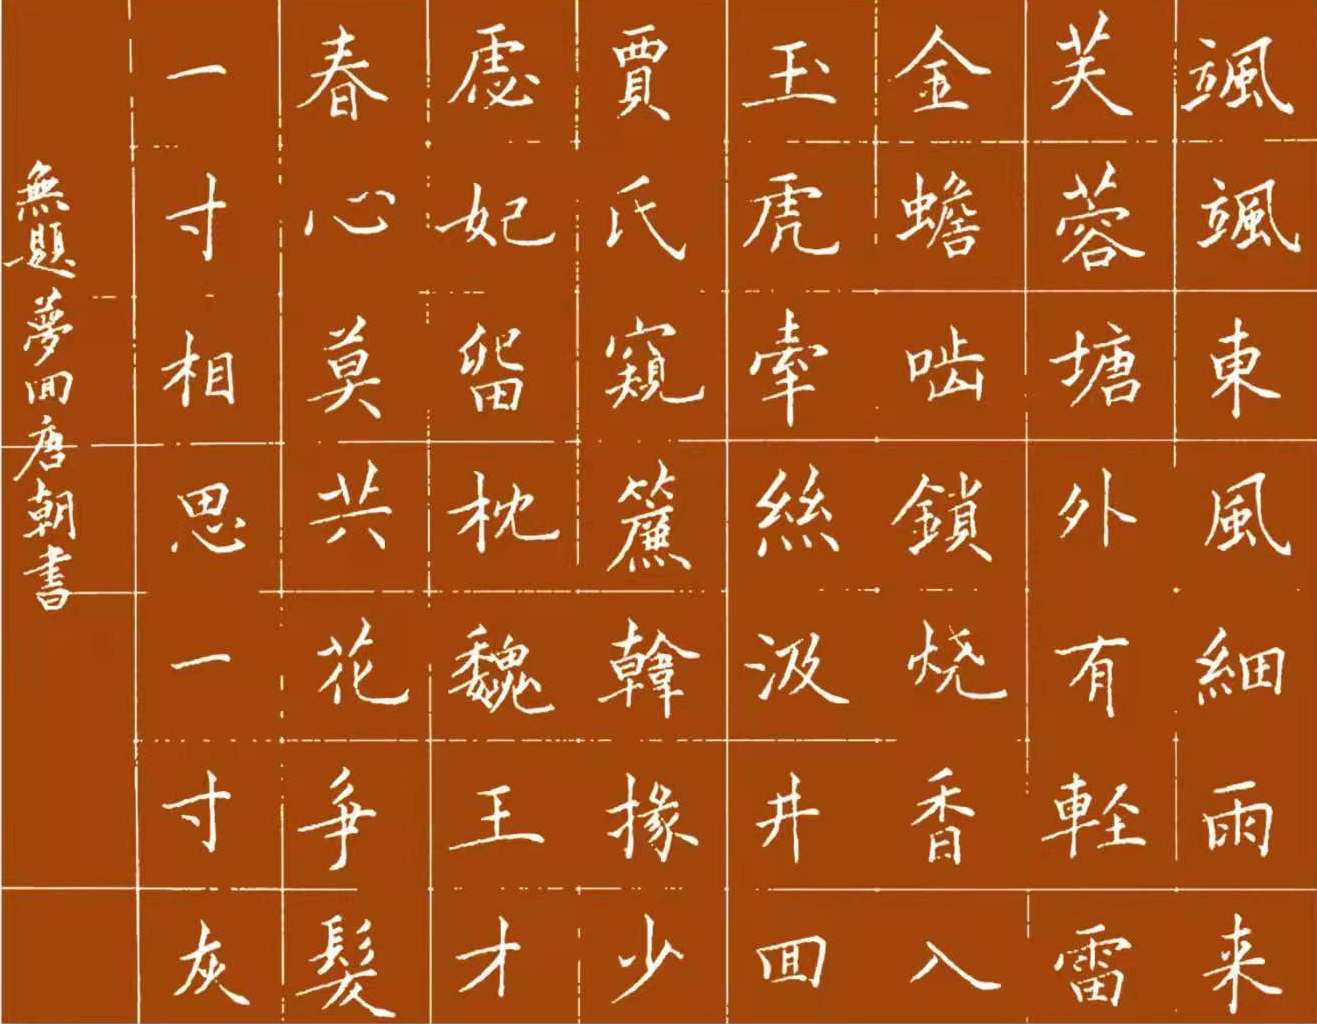 颯颯東風細雨来
芙蓉塘外有軽雷
金蟾啮鎖烧香入
玉虎牽絲汲井囬
賈氏窺簾韓掾少
虙妃留枕魏王才
春心莫共花爭髮
一寸相思一寸灰
無題夢囬唐朝書